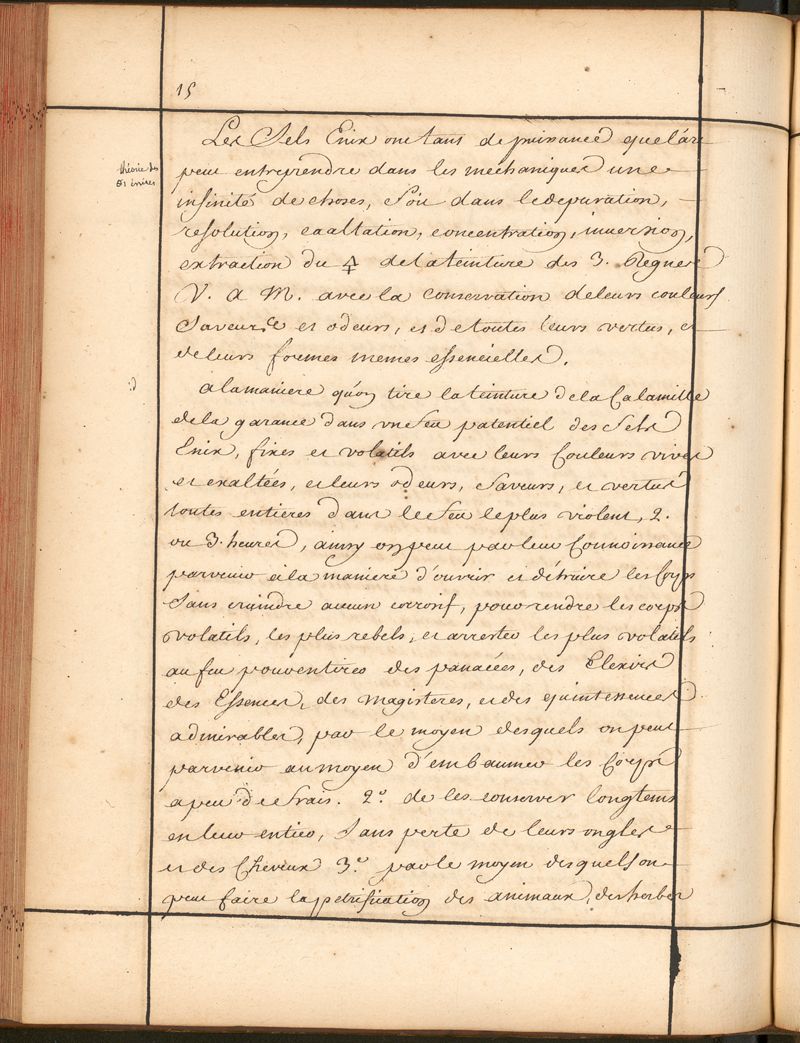 15
théorie des
🜔 enixes
Les Sels Enix ont tant de puissance que l'art
peut entreprendre dans les mechaniques une
infinité de choses, soit dans le depuration,
resolution, exaltation, concentration, inuersion,
extraction du 🜍 de la teinture des 3. Regnes
V. A M. avec la conservation de leurs couleurs
saveurs et odeurs, et de toutes leurs vertus, et
de leurs formes memes essencielles.
a la maniere qu'on tire la teinture de la Calamille
de la garance dans un feu patentiel des Sels
Enix, fixes et volatils avec leurs Couleurs vives
et exaltées, et leurs odeurs, saveurs, et vertus
toutes entieres dans le feu le plus violent, 2.
ou 3. heures, ainsy on peut par leur Connoissance
parvenir a la maniere d'ouvrir et détruire les Corps
sans craindre aucun corrosif, pour rendre les corps
volatils, les plus rebels, et arrester les plus volatils
au feu pour en tirer des panacées, des Elexirs
des Essences, des magisteres, et des quintessences
admirables, par le moyen desquels on peut
parvenir au moyen d'embaumer les Corps
a peu de frais. 2.º de les conserver longtems
en leur entier, sans perte de leurs ongles
et des Cheveux 3.º par le moyen desquels on
peut faire la petrification des animaux, des herbes